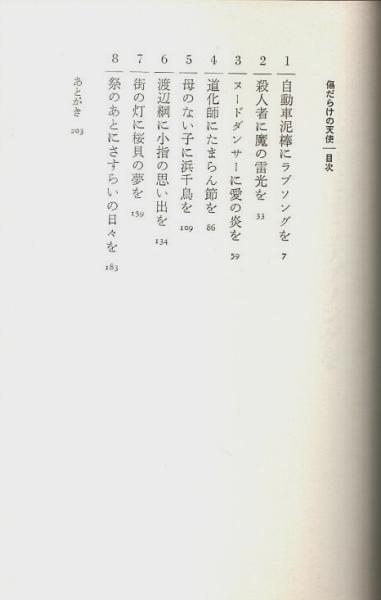 傷だらけの天使｜目次
1 自動車泥棒にラブソングを 7
2 殺人者に魔の雷光を 33
3 ヌードダンサーに愛の炎を 59
4 道化師にたまらん節を 86
5 母のない子に浜千鳥を 109
6 渡辺綱に小指の思い出を 134
7 街の灯に桜貝の夢を 159
8 祭のあとにさすらいの日々を 183
あとがき 203